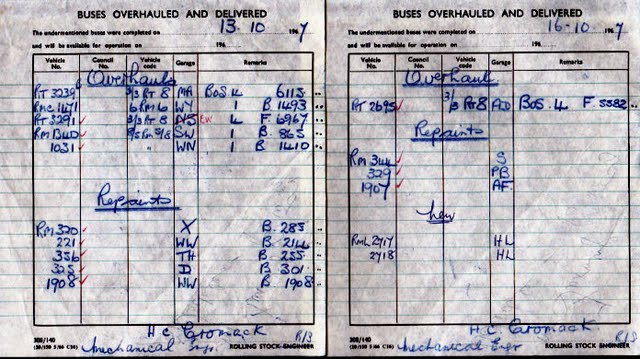 BUSES OVERHAULED AND DELIVERED
The undermentioned buses were completed on 13-10 1967
and will be available for operation on 196
Vehicle No. Council No. Vehicle code Garage Remarks
Overhauls
RT 3239 3/3 RT 8 MA BOS. 4 6115
RMC 1471 6 RM 6 WY 1 B 1493
RT 3291 3/3 RT 8 NS 4 F. 6967
RM 1340 SW 1 B. 865
1031 WN 1 B 1410
Repaints
RM 320 X B. 285
221 WW B 214
356 TH B 255
325 D B 301
1908 WW B 1908
H C Cromack
308/140
Mechanical Engr. R/3
ROLLING STOCK ENGINEER
BUSES OVERHAULED AND DELIVERED
The undermentioned buses were completed on 16-10 1967
and will be available for operation on 196
Vehicle No. Council No. Vehicle code Garage Remarks
Overhaul
RT 2695 3/3 RT 8 BOS. 4 F 5582
Repaints
RM 344 S
329 PB
1907 AF
New
RML 2717 HL
2718 HL
H C Cromack
308/140
Mechanical Engr R/3
ROLLING STOCK ENGINEER